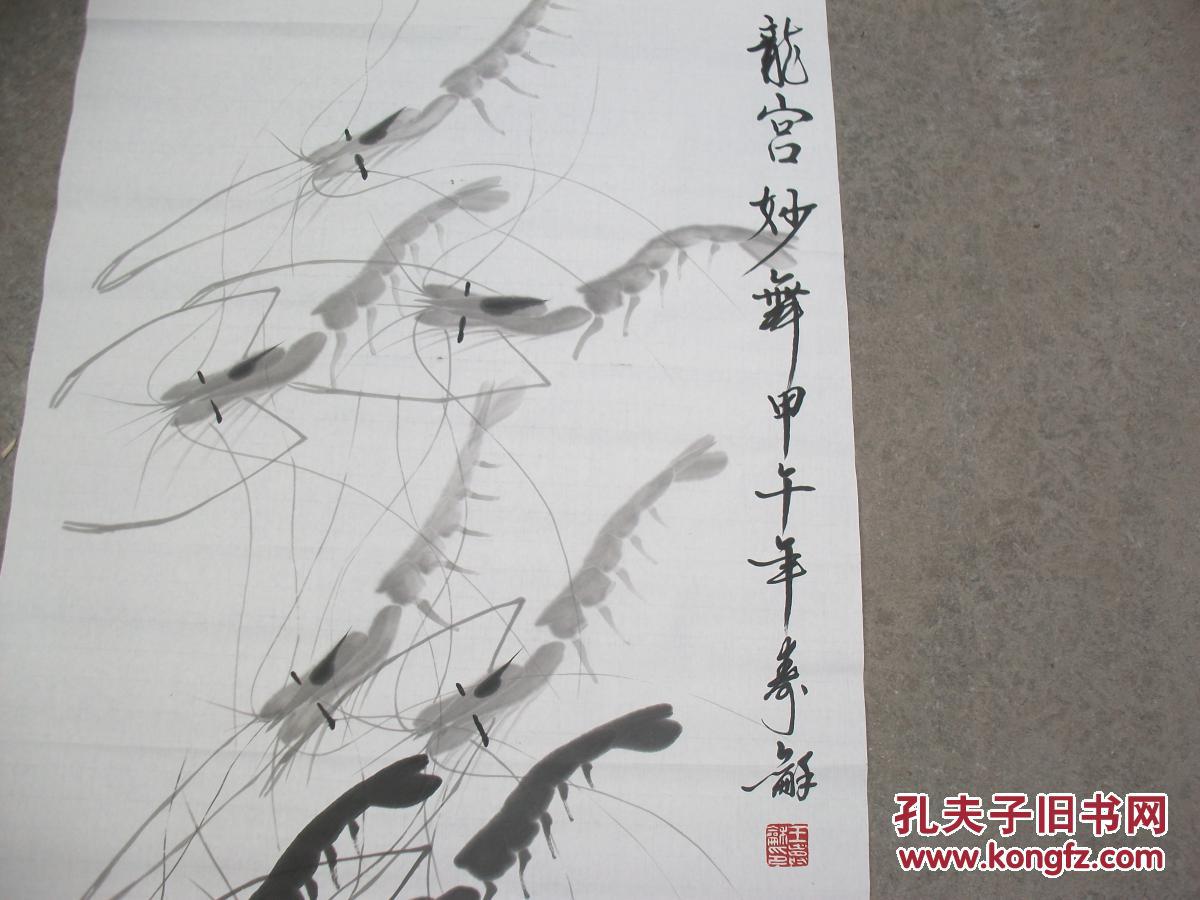 龍宫妙舞甲午年寿龢
王壽龢印
孔夫子旧书网
www.kongfz.com